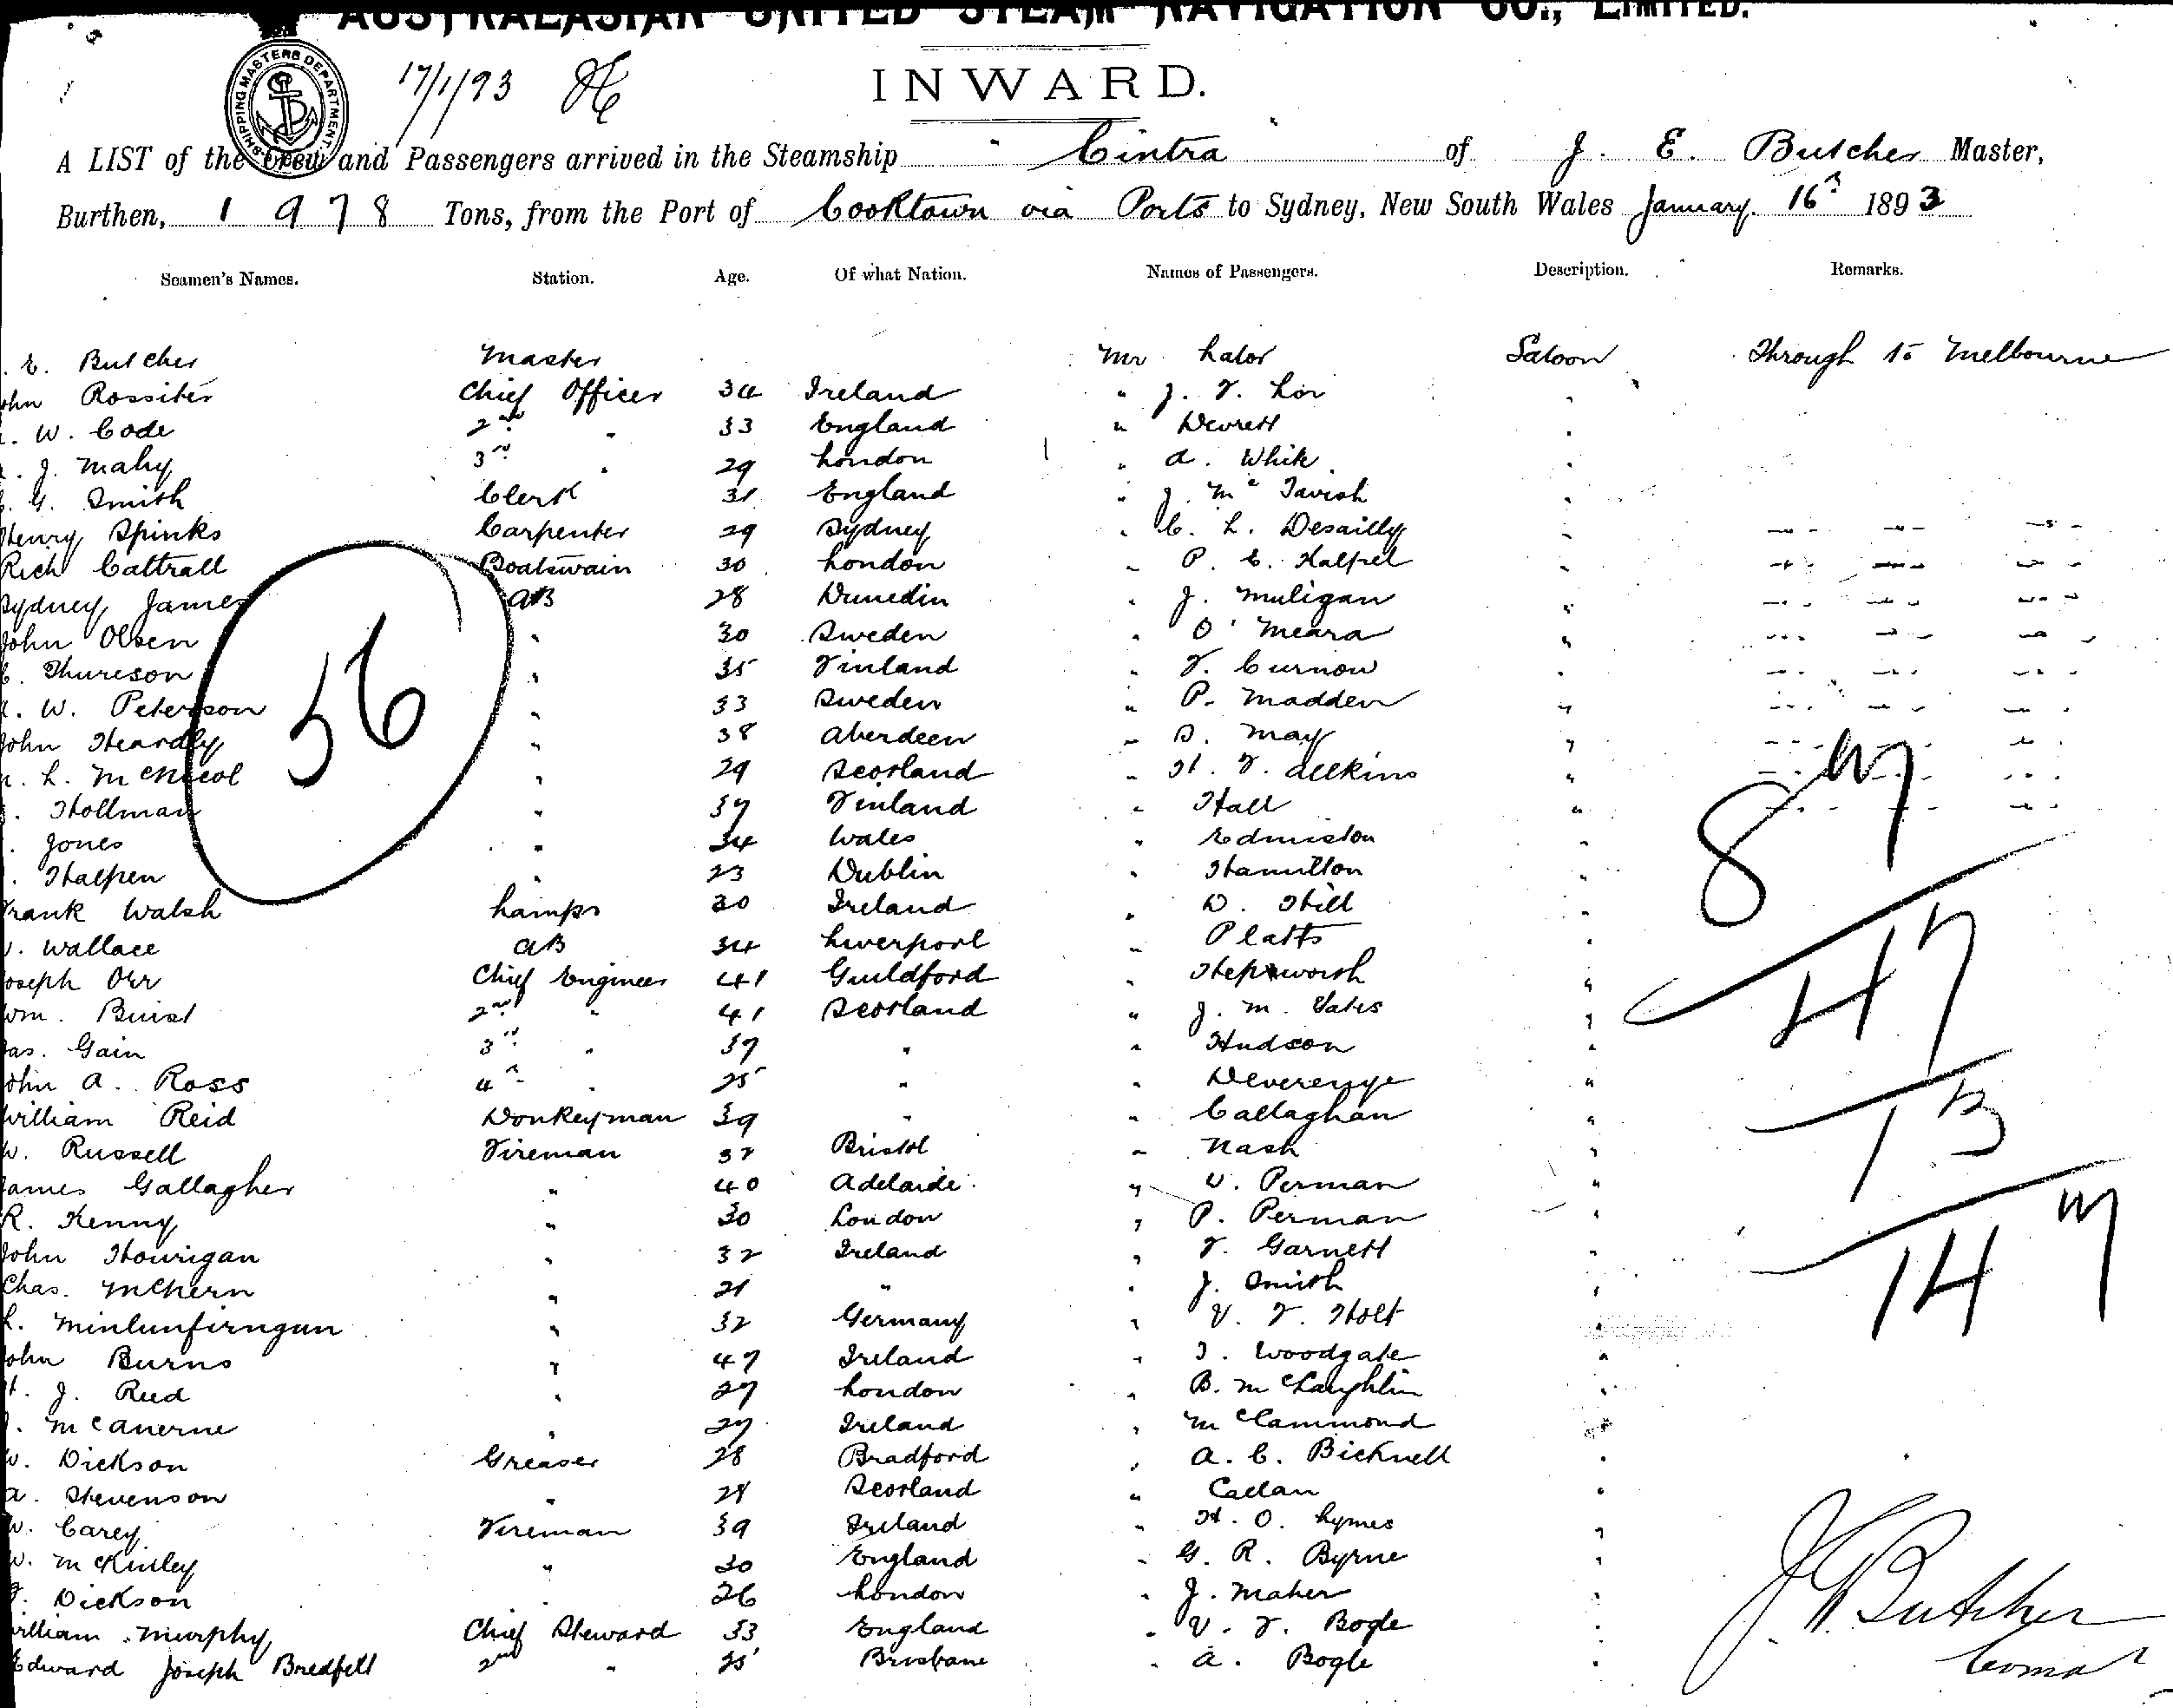 AUSTRALASIAN UNITED STEAM NAVIGATION CO., LIMITED.
SHIPPING MASTERS DEPARTMENT.
17/1/93
INWARD.
A LIST of the Crew and Passengers arrived in the Steamship Cintra of J. E. Butcher Master,
Burthen, 1978 Tons, from the Port of Cooktown via Ports to Sydney, New South Wales January 16th 1893
Seamen's Names. Station. Age. Of what Nation. Names of Passengers. Description. Remarks.
. E. Butcher Master Mr Lalor Saloon Through to Melbourne
ohn Rossiter Chief Officer 34 Ireland " J. F. Lor "
. W. Code 2nd " 33 England "
. J. Mahy 3rd " 29 London " A. White "
. G. Smith Clerk 31 England " J. McTavish "
Henry Spinks Carpenter 29 Sydney " C. L. Desailly " " " "
Rich Cattrall Boatswain 30 London " P. E. " " " "
Sydney James AB 28 Dunedin " J. Muligan " " " "
John Olsen " 30 Sweden " O'Meara " " " "
C. Thureson " 35 Finland " F. Curnow " " " "
. W. Peterson " 33 Sweden " P. Madden " " " "
John Heardly " 38 Aberdeen " S. May " " " "
. L. McNicol " 29 Scotland " H. F. Allkins " " " "
. Hollman " 37 Finland " Hall " " " "
. Jones " 34 Wales " Edmiston "
. Halpen " 23 Dublin " Hamilton "
Frank Walsh Lamps 30 Ireland " D. Hill "
. Wallace AB 34 Liverpool " Platts "
Joseph Orr Chief Engineer 41 Guildford " Hepworth "
Wm. Buist 2nd " 41 Scotland " J. M. Yates "
as. Gain 3rd " 37 " " Hudson "
ohn A. Ross 4th " 25 " " "
William Reid Donkeyman 39 " " Callaghan "
W. Russell Fireman 37 Bristol " Nash "
ames Gallagher " 40 Adelaide " W. Perman "
R. Kenny " 30 London " P. Perman "
John Hourigan " 32 Ireland " F. Garnett "
Chas. McKern " 21 " " J. Smith "
L. " 32 Germany " V. F. Holt "
ohn Burns " 47 Ireland " J. Woodgate "
H. J. Reed " 27 London " B. McLaughlin "
. McAnerne " 27 Ireland " McCammond "
W. Dickson Greaser 28 Bradford " A. C. Bicknell "
A. Stevenson " 28 Scotland " Callan "
W. Carey Fireman 39 Ireland " H. O. Lymes "
W. McKinley " 30 England " G. R. Byrne "
J. Dickson " 26 London " J. Maher "
William Murphy Chief Steward 33 England " V. F. Bogle "
Edward Joseph Bredfell 2nd " 25 Brisbane " A. Bogle "
56
8 M
47
13
14 M
J. E. Butcher